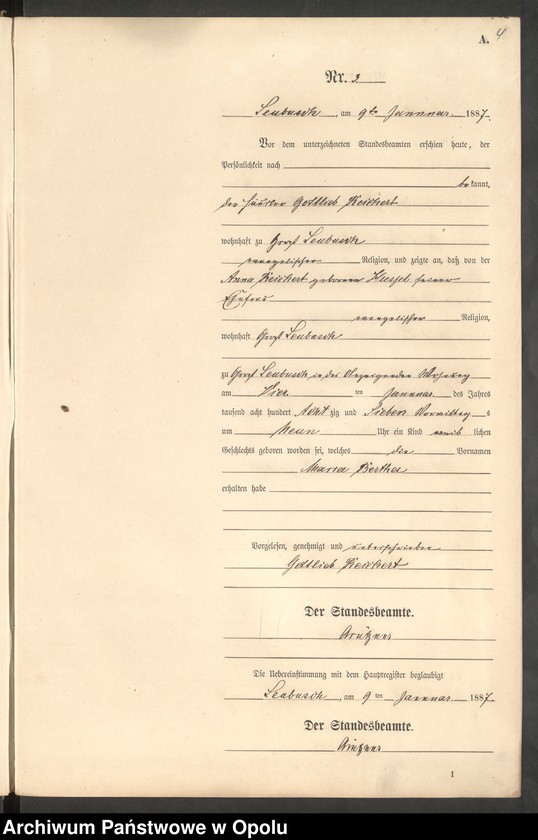 A. 4
Nr. 3
Leubusch, am 9ten Januar 1887.
Vor dem unterzeichneten Standesbeamten erschien heute, der
Persönlichkeit nach
bekannt,
der Häusler Gottlieb Reichert
wohnhaft zu Groß Leubusch
evangelischer Religion, und zeigte an, daß von der
Anna Reichert geborenen seiner
Ehefrau
evangelischer Religion,
wohnhaft Groß Leubusch
zu Groß Leubusch in des Anzeigenden Wohnung
am Vier ten Januar des Jahres
tausend acht hundert Acht zig und Sieben Vormittag s
um Neun Uhr ein Kind weib lichen
Geschlechts geboren worden sei, welches die Vornamen
Maria Bertha
erhalten habe
Vorgelesen, genehmigt und unterschrieben
Gottlieb Reichert
Der Standesbeamte.
Die Uebereinstimmung mit dem Hauptregister beglaubigt
Leubusch, am 9 ten Januar 1887.
Der Standesbeamte.
1
Archiwum Państwowe w Opolu